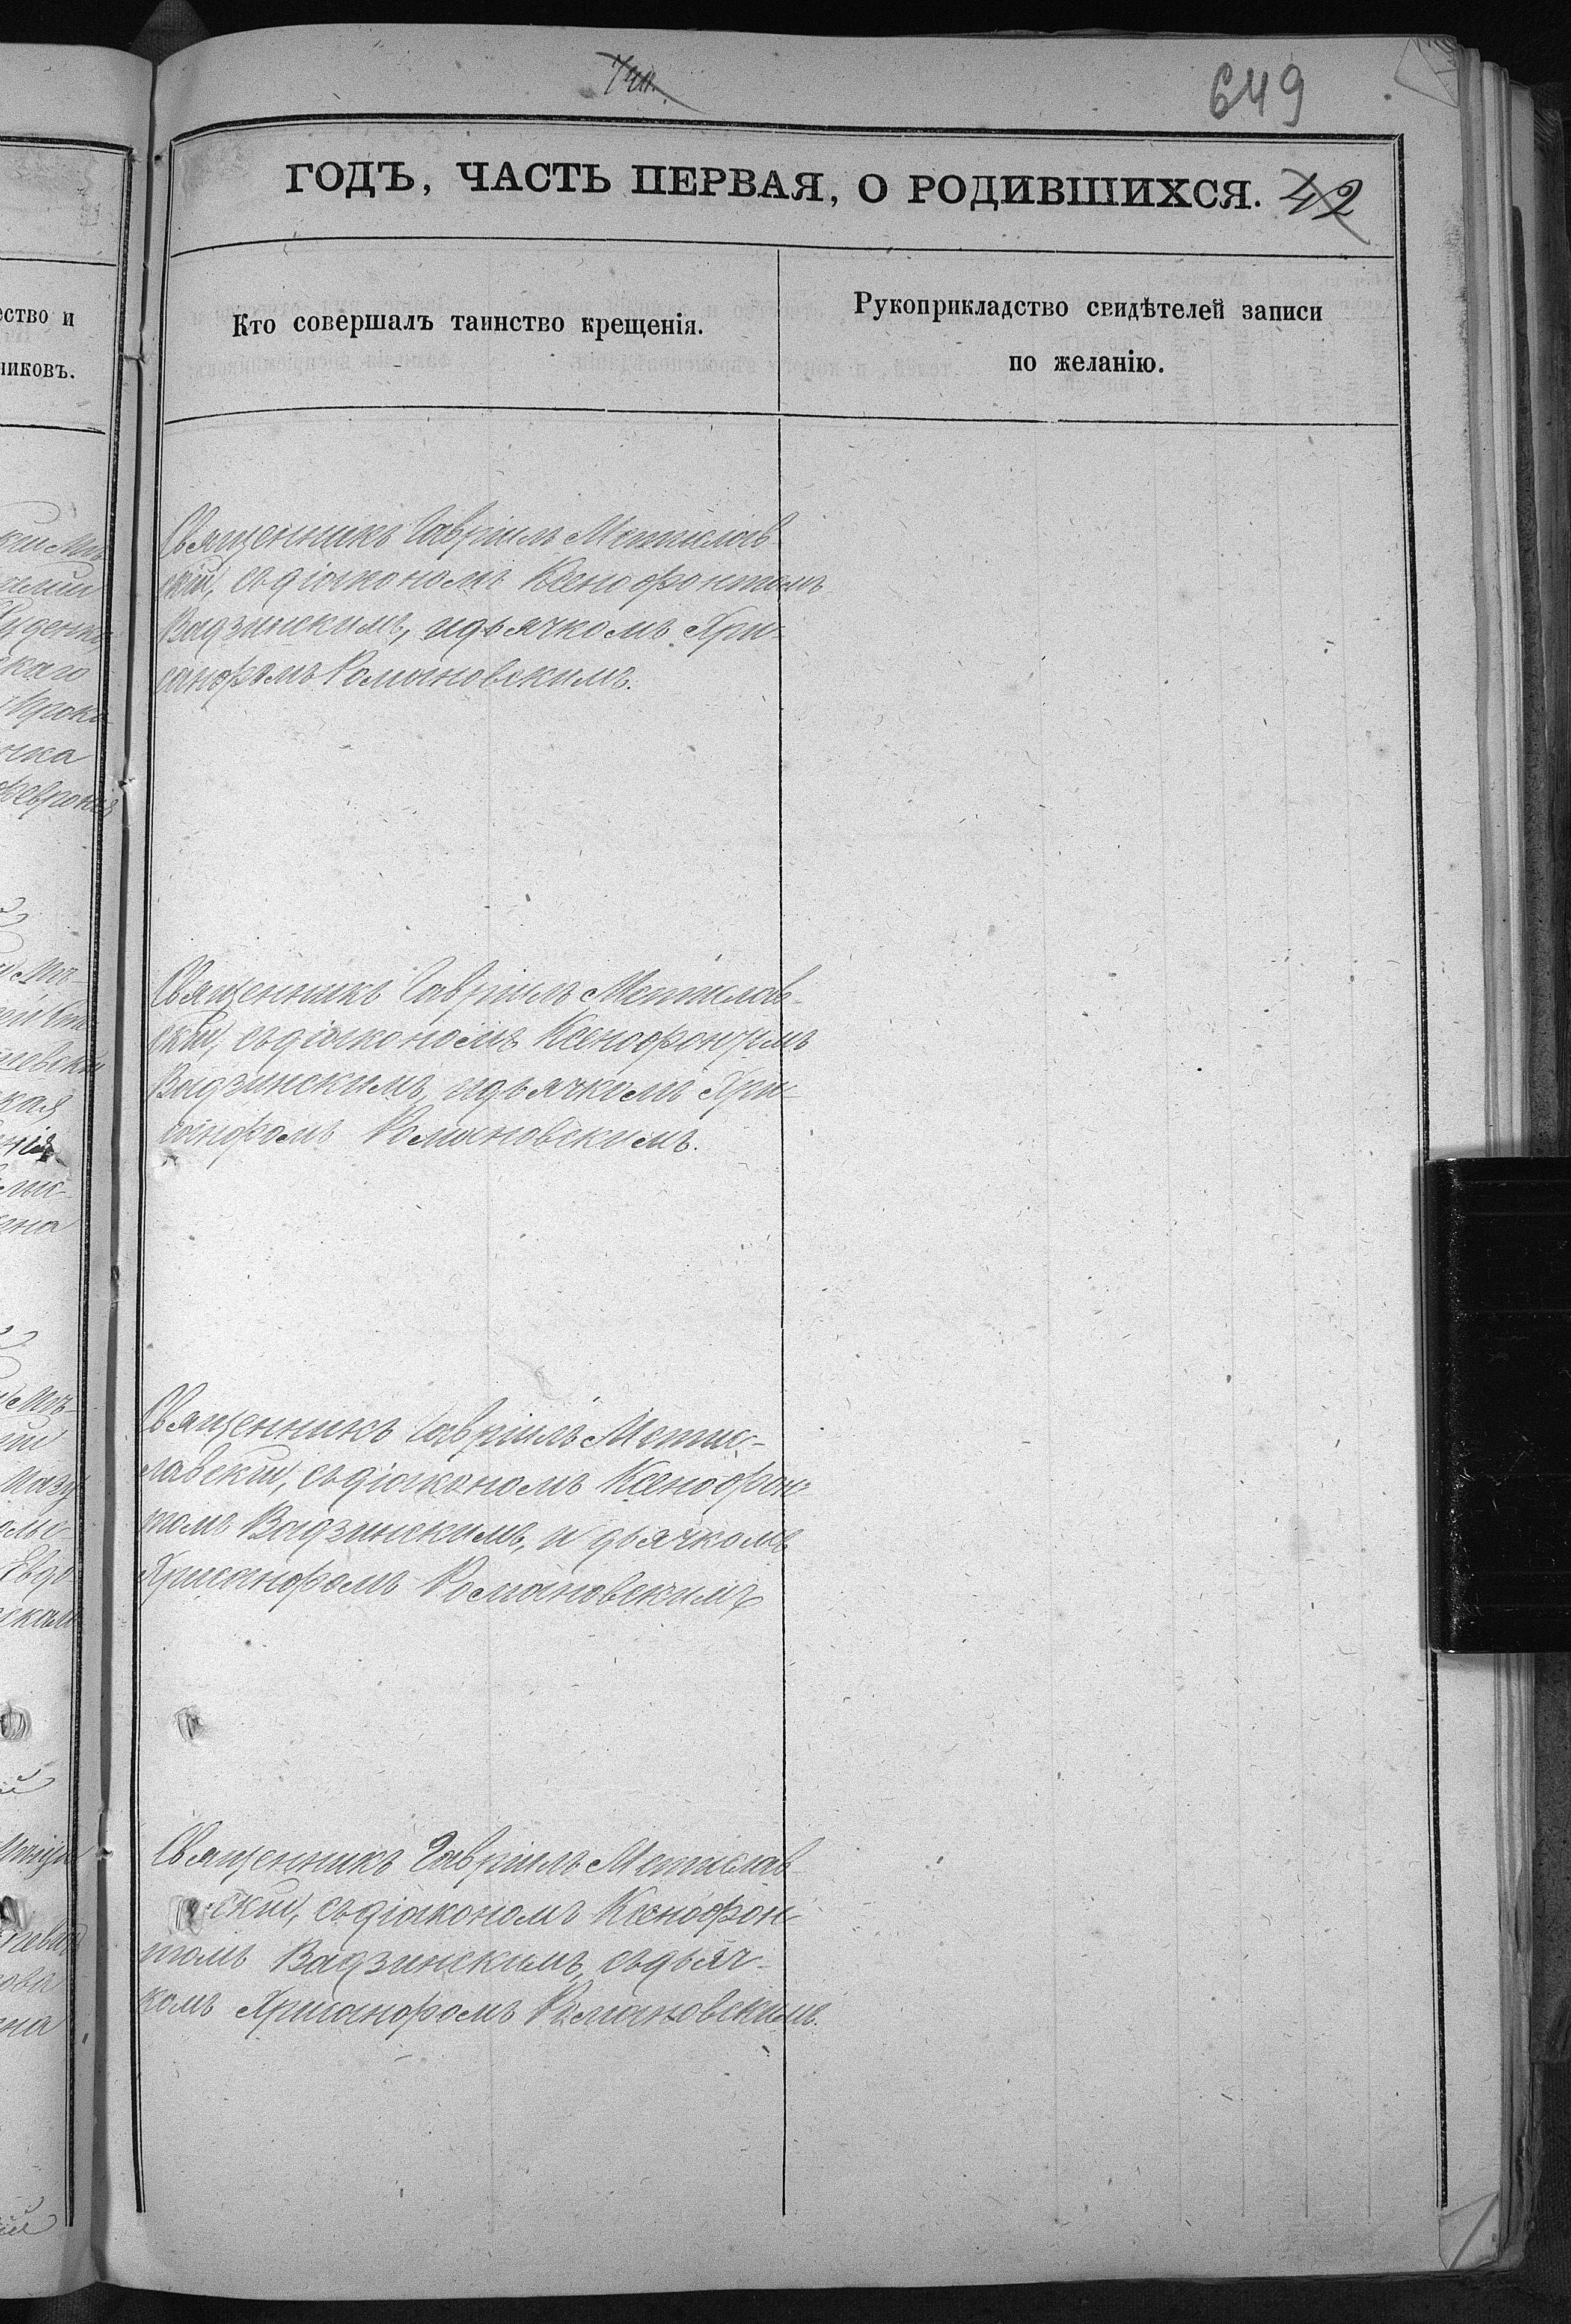 649
ГОДЪ, ЧАСТЬ ПЕРВАЯ, О РОДИВШИХСЯ. 42
ество и
никовъ.
Кто совершалъ таинство крещенія.
Рукоприкладство свидѣтелей записи
по желанію.
Священникъ Гавріилъ Мстислав
скій, съ діакономъ Ксенофонтомъ
Вадзинскимъ, и дьячкомъ Хри-
санфомъ Романовскимъ.
Священникъ Гавріилъ Мстислав-
скій, съ діакономъ Ксенофонтомъ
Вадзинскимъ, и дьячкомъ Хри-
санфомъ Романовскимъ.
Священникъ Гавріилъ Мстис-
лавскій, съ діакономъ Ксенофон-
томъ Вадзинскимъ, и дьячкомъ
Хрисанфомъ Романовскимъ
Священникъ Гавріилъ Мстислав
скій, съ діакономъ Ксенофон-
томъ Вадзинскимъ, съ дьяч-
комъ Хрисанфомъ Романовскимъ.